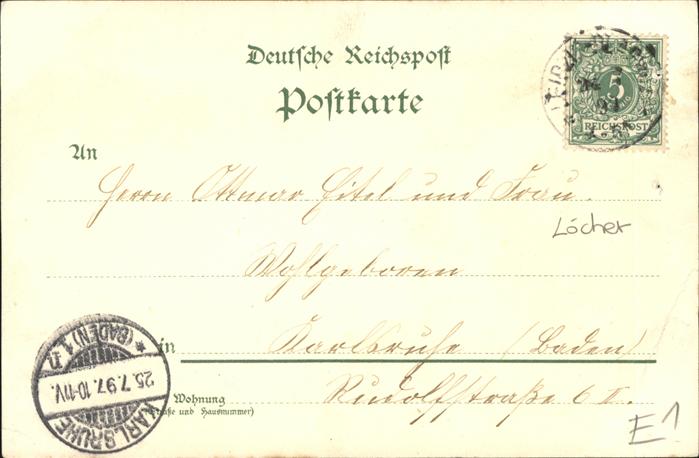 Deutsche Reichspost
Postkarte
5
REICHSPOST
An
Herrn Ottmar Eitel und Frau.
Löcher
Wohlgeboren
in Karlsruhe (Baden)
Wohnung Rudolfstraße 6 II.
(Straße und Hausnummer)
KARLSRUHE
25.7.97.10-11V.
* (BADEN) 1 n
E1